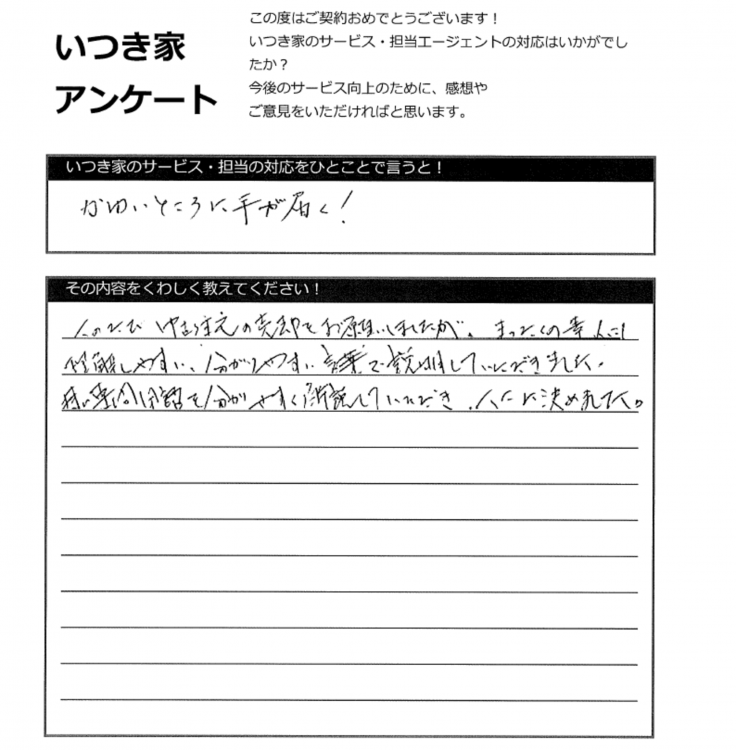 いつき家
アンケート
この度はご契約おめでとうございます！
いつき家のサービス・担当エージェントの対応はいかがでし
たか？
今後のサービス向上のために、感想や
ご意見をいただければと思います。
いつき家のサービス・担当の対応をひとことで言うと！
かゆいところに手が届く！
その内容をくわしく教えてください！
の売却をお願いしましたが、まったくの素人にも
理解しやすい、分かりやすい言葉で説明していただきました。
専門用語を分かりやすく解説していただき、に決めました。